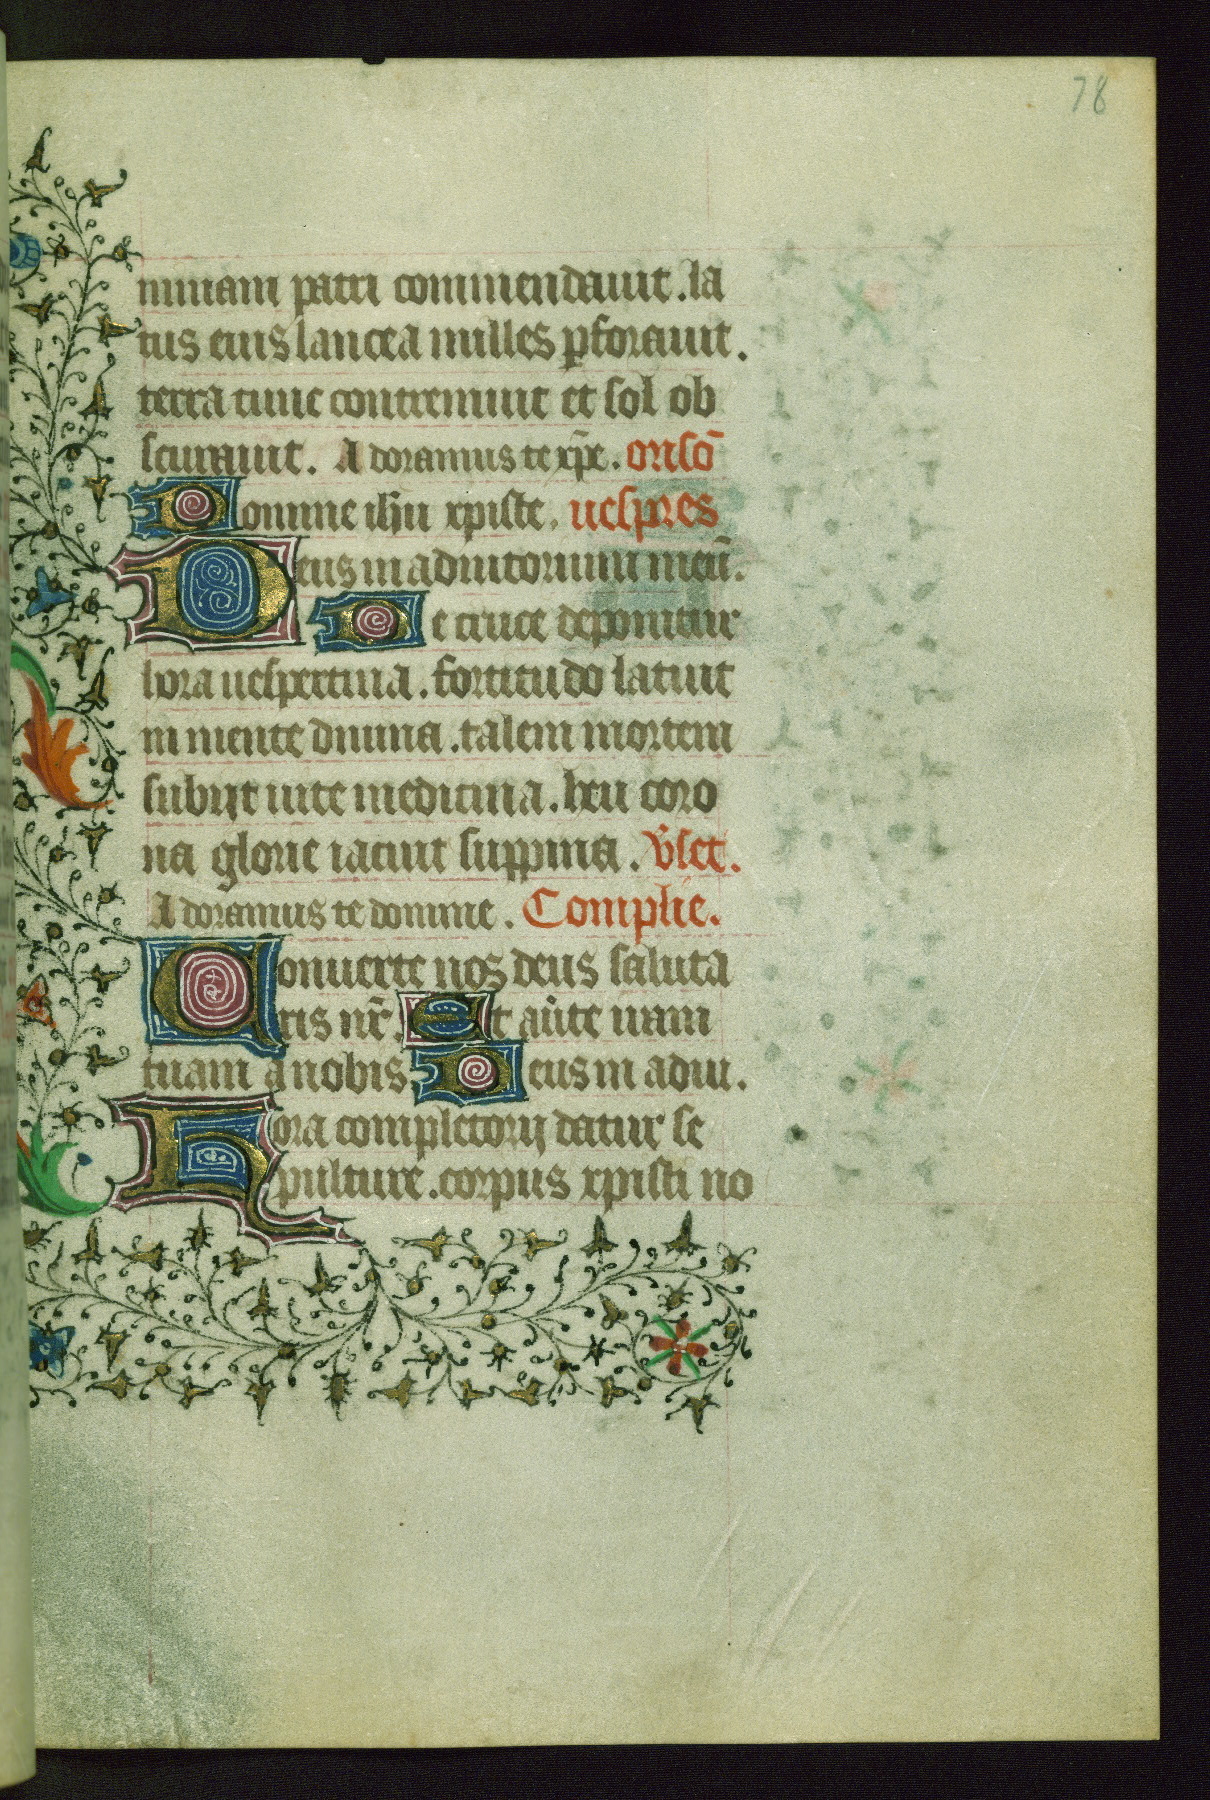 78
nimam patri commendauit. la
tus eius lancea milles pforauit.
terra tunc contremuit et sol ob
scurauit. Adoramus te xp̄e. orisō
Domine ihu xpiste. uespres
Deus in adiutorium meū.
De cruce deponitur
hora uespertina. fortitudo latuit
in mente diuina. talem mortem
subijt uite medicina. heu coro
na glorie iacuit suppina. v̄set.
Adoramus te domine. Complie.
Conuerte nos deus saluta
ris nr̄. Et aūte iram
tuam a nobis. Deus in adiu.
Hora completorij datur se
pulture. corpus xpisti no